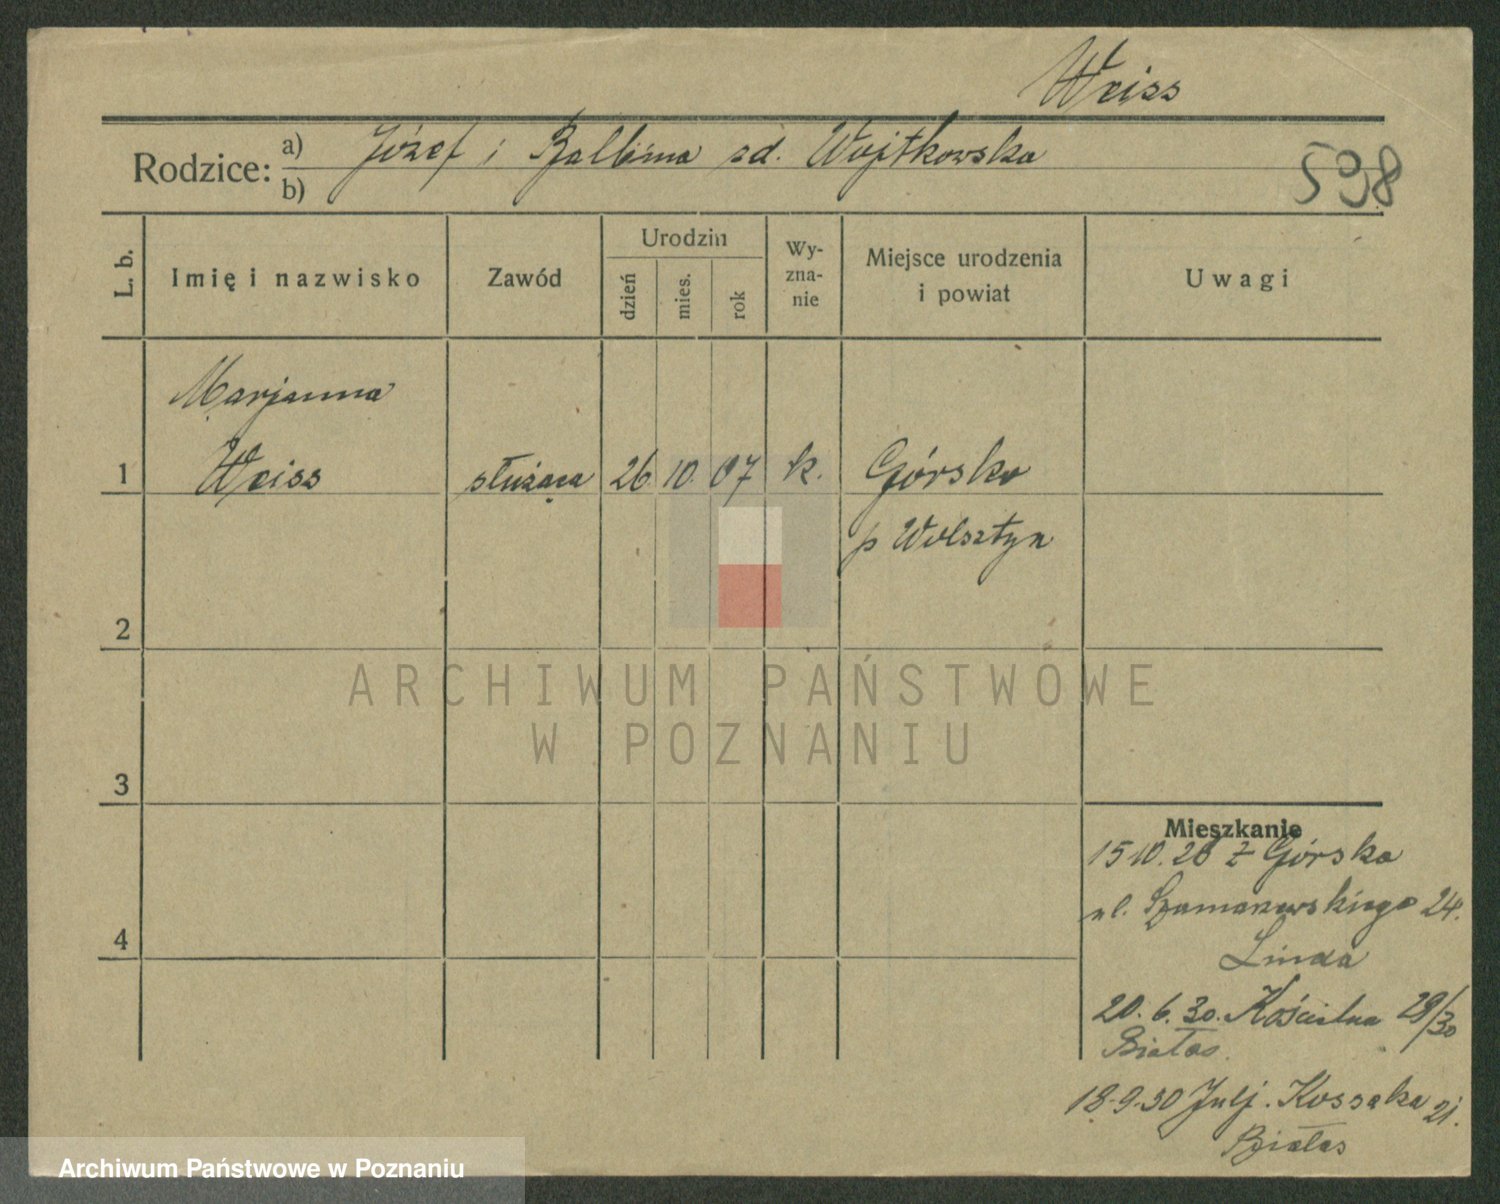 Weiss
Rodzice: a) Józef i Balbina zd. Wojtkowska
b)
598
L. b.
Imię i nazwisko
Zawód
Urodzin
dzień
mies.
rok
Wy-
zna-
nie
Miejsce urodzenia
i powiat
Uwagi
Marjanna
1 Weiss służąca 26 10. 07 k. Górsko
p Wolsztyn
2
ARCHIWUM PAŃSTWOWE
W POZNANIU
3
Mieszkanie
15 10. 26 z Górska
ul. Szamarzewskiego 24.
Linda
4
20. 6. 30. Kościelna 28/30
Białas.
18.9.30 Julj. Kossaka 21.
Białas
Archiwum Państwowe w Poznaniu